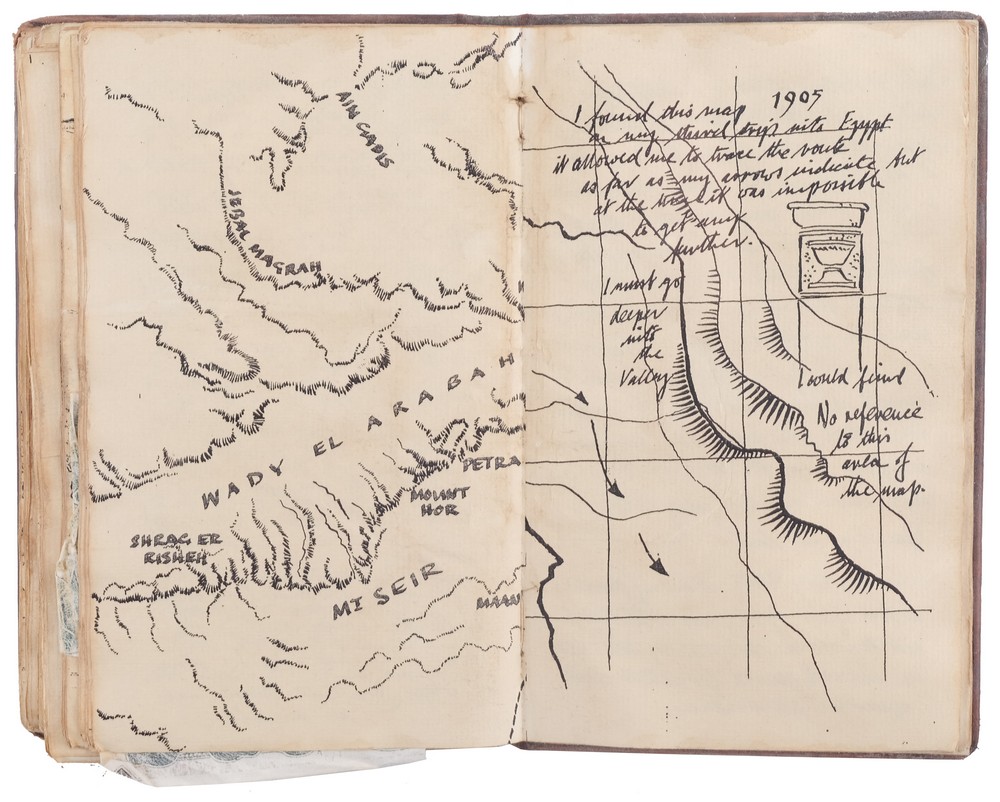 AIN GADIS
JEBAL MAGRAH
WADY EL ARABAH
PETRA
MOUNT
HOR
SHRAG ER
RISHEH
MT SEIR
MAAN
1905
I found this map
on my travel trip into Egypt
it allowed me to trace the rout
as far as my arrows indicate but
at the time it was impossible
to get any
further.
I must go
deeper
into
the
Valley
I could find
No reference
to this
area of
the map.